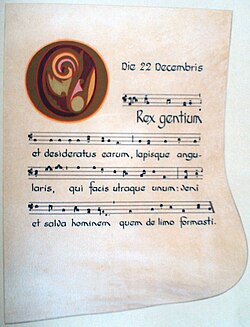 Die 22 Decembris
O
Rex gentium
et desideratus earum, lapisque angu-
laris, qui facis utraque unum: veni
et salva hominem quem de limo formasti.